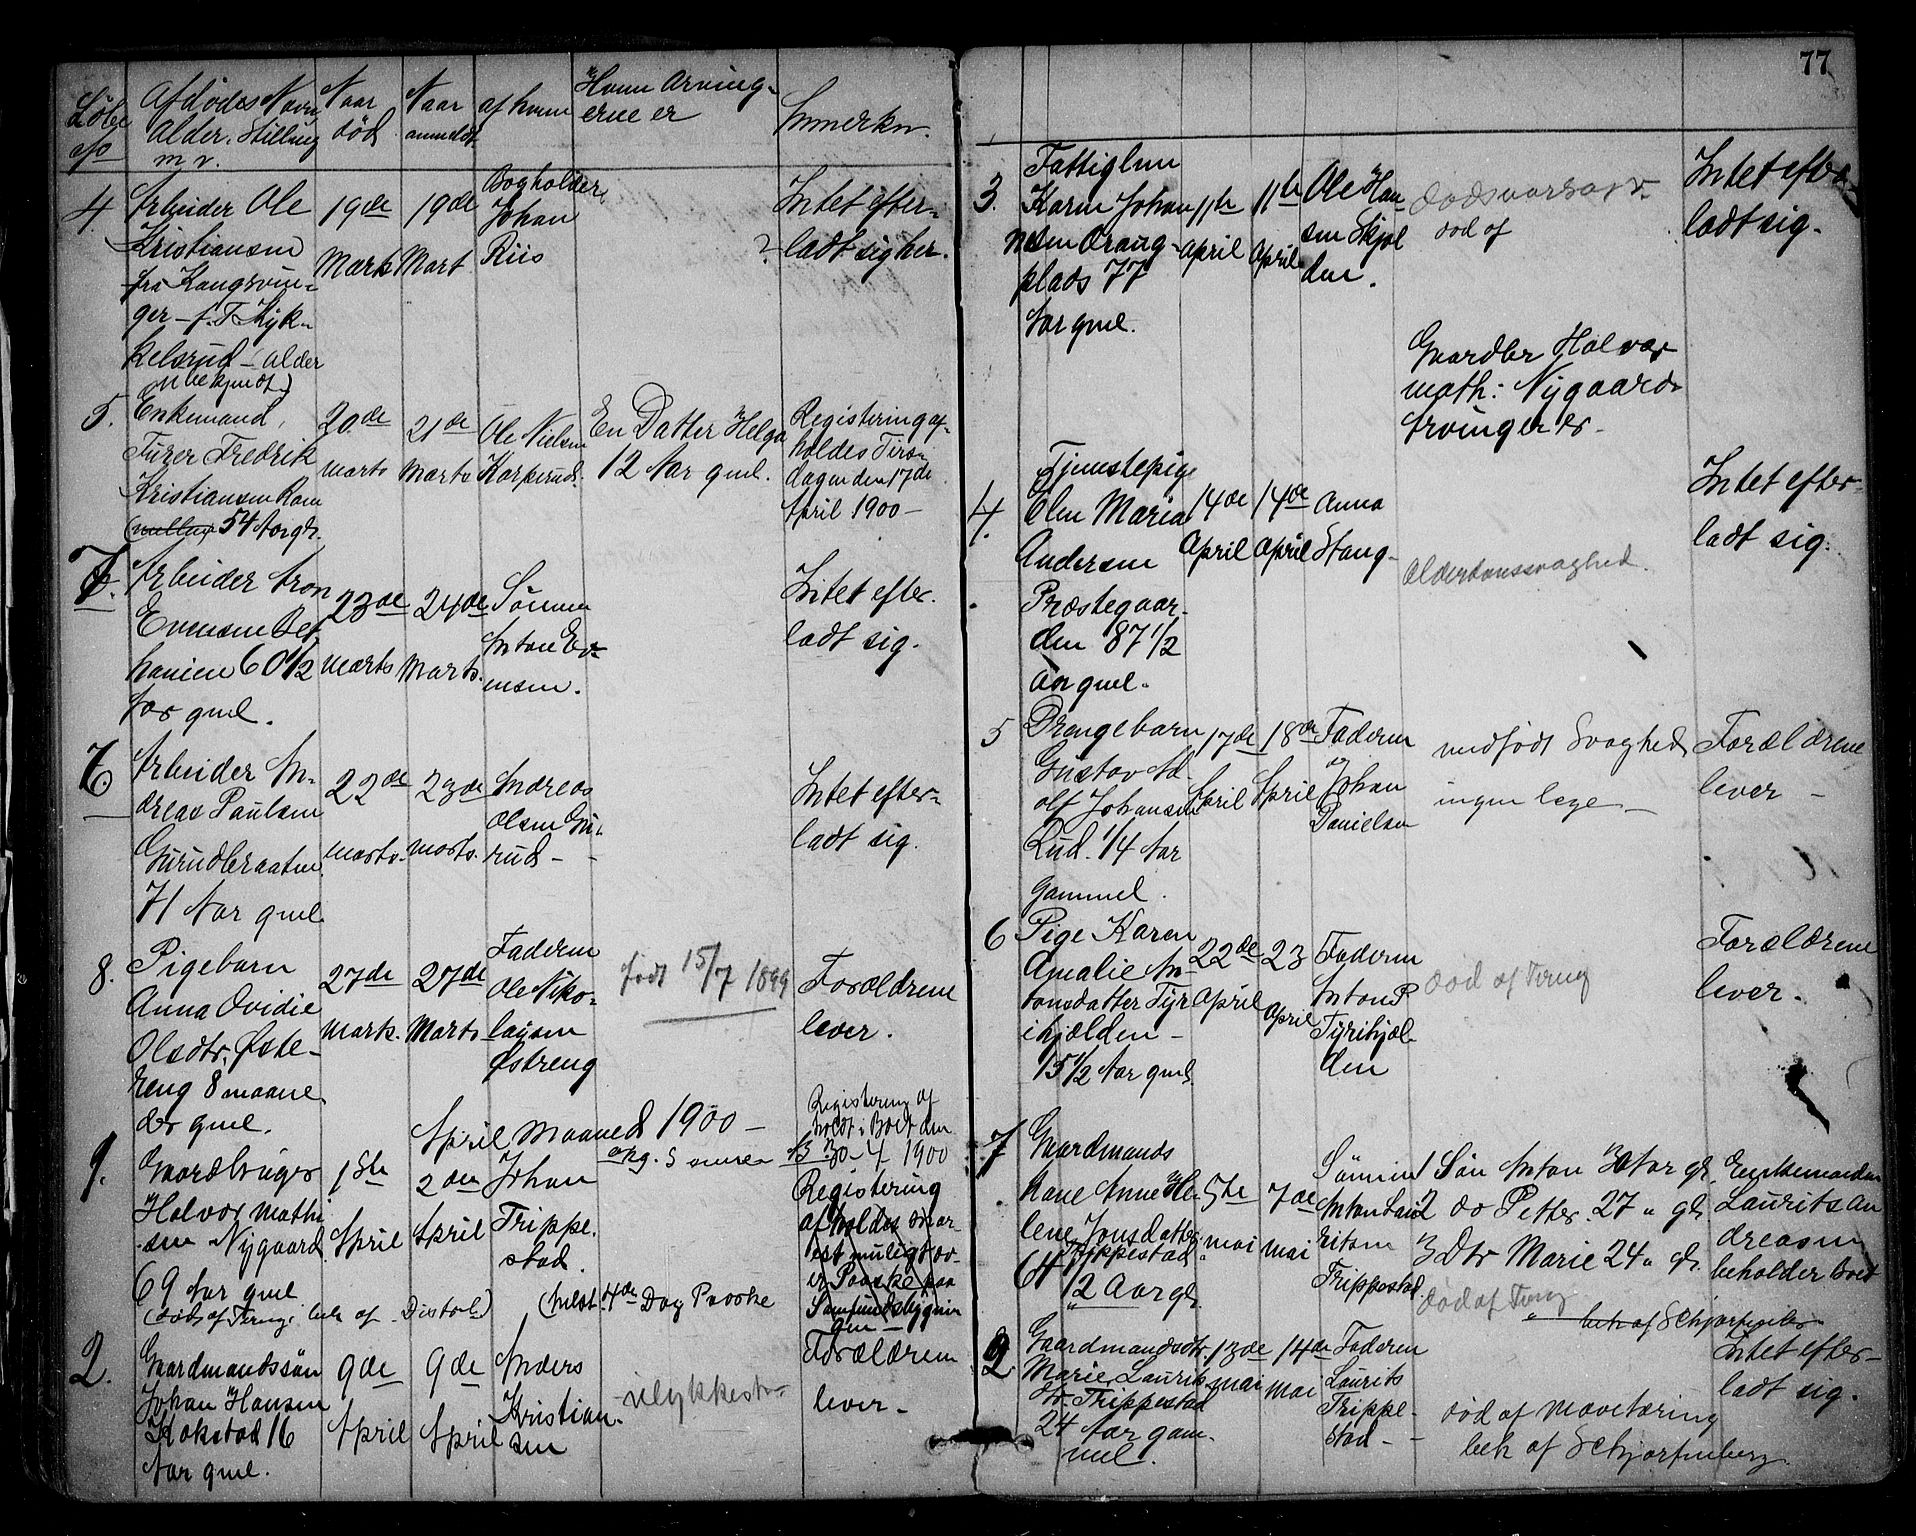 77
Løbe No
Afdødes Navn Alder. Stilling m v.
Naar død
Naar anmeldt
af hvem
Hvem Arving-
erne er
Anmerkn.
4. Arbeider Ole
Kristiansen
fra Kongsvin-
ger - f. T. Kyk-
kelsrud - (alder
ubekjendt)
19de
Marts
19de
Mart
Bogholder
Johan
Riis
? Intet efter-
ladt sig her.
5. Enkemand,
Furer Fredrik
Kristiansen
54 Aar gl.
20de
marts
21de
Marts
Ole Nielsen
Korperud.
En Datter Helga
12 Aar gml.
Registering af-
holdes Tirs-
dagen den 17de
April 1900 -
7. Arbeider Aron
Evensen Bet
hanien 60 1/2
Aar gml.
23de
marts
24de
Marts.
Sønnen
Anton Ev-
ensen.
Intet efter.
ladt sig.
6. Arbeider An-
dreas Paulsen
Gurudbraaten
71 Aar gml
22de
marts.
23de
marts.
Andreas
Olsen Gu-
rud -
Intet efter-
ladt sig.
8. Pigebarn
Anna Ovidie
Olsdtr. Øste-
reng 8 maane
der gml.
27de
Marts.
27de
Marts
Faderen
Ole Niko-
laisen
Østreng
født 15/7 1899
Forældrene
lever.
April Maaned 1900 -
1. Gaardbruger
Halvor Mathi
sen Nygaard
69 Aar gml
(død af Tæring, beh af Distol)
1ste
April
2den
April
Johan
Trippe.
stad.
(helst 4de Dag Paaske
Registering af
holdt i Boet den
30-4 1900
Registering
afholdes snar-
est muligt ov-
er Paaske paa
Samfundsbygnin
gen -
2. Gaardmandssøn
Johan Hansen
Kokstad 16
Aar gml.
9de
April
9de
April
Anders
Kristian-
sen
ulykkestr
Forældrene
lever -
3. Fattiglem
Karen Johan
nesen Orang-
plads 77
Aar gml.
11te
April
11te
April
Ole Han-
sen Skjol
den.
Dødsaarsag
død af
Intet efter-
ladt sig.
Gaardbr Halvor
Math: Nygaards
Arvinger er -
4. Tjenestepige
Elen Maria
Andersen
Præstegaar-
den 87 1/2
Aar gml.
14de
April
14de
April
Anna
Stang -
Alderdomssvaghed.
Intet efter-
ladt sig.
5 Drengebarn
Gustav Ad-
olf Johansen
Rud. 1/4 Aar
Gammel.
17de
April
18de
April
Faderen
Johan
Danielsen
medfødt Svaghed
ingen lege -
Forældrene
lever -
6 Pige Karen
Amalie An-
tonsdatter Tyr
ihjælden -
15 1/2 Aar gml.
22de
April
23
April
Faderen
Anton P.
Tyrihjel-
den
død af Tæring
Forældrene
lever.
7 Gaardmands
kone Anne He-
lene Jonsdatter
Trippestad
64 1/2 Aar gl.
5te
mai
7de
mai
Sønnen
Anton Lau-
ritsen
Trippestad
1 Søn Anton 30 Aar gl.
2 do Petter. 27 " gl.
3 Dtr Marie 24 " gl.
død af Tæring
beh af Schjarfenberg
Enkemanden
Laurits An
dreasen
beholder Boet
2 Gaardmandsdtr.
Marie Laurits
dtr. Trippestad
24 Aar gam-
mel.
13de
mai
14de
mai
Faderen
Laurits
Trippe-
stad -
død af Mavetæring
beh af Schjarfenberg
Intet efter-
ladt sig.